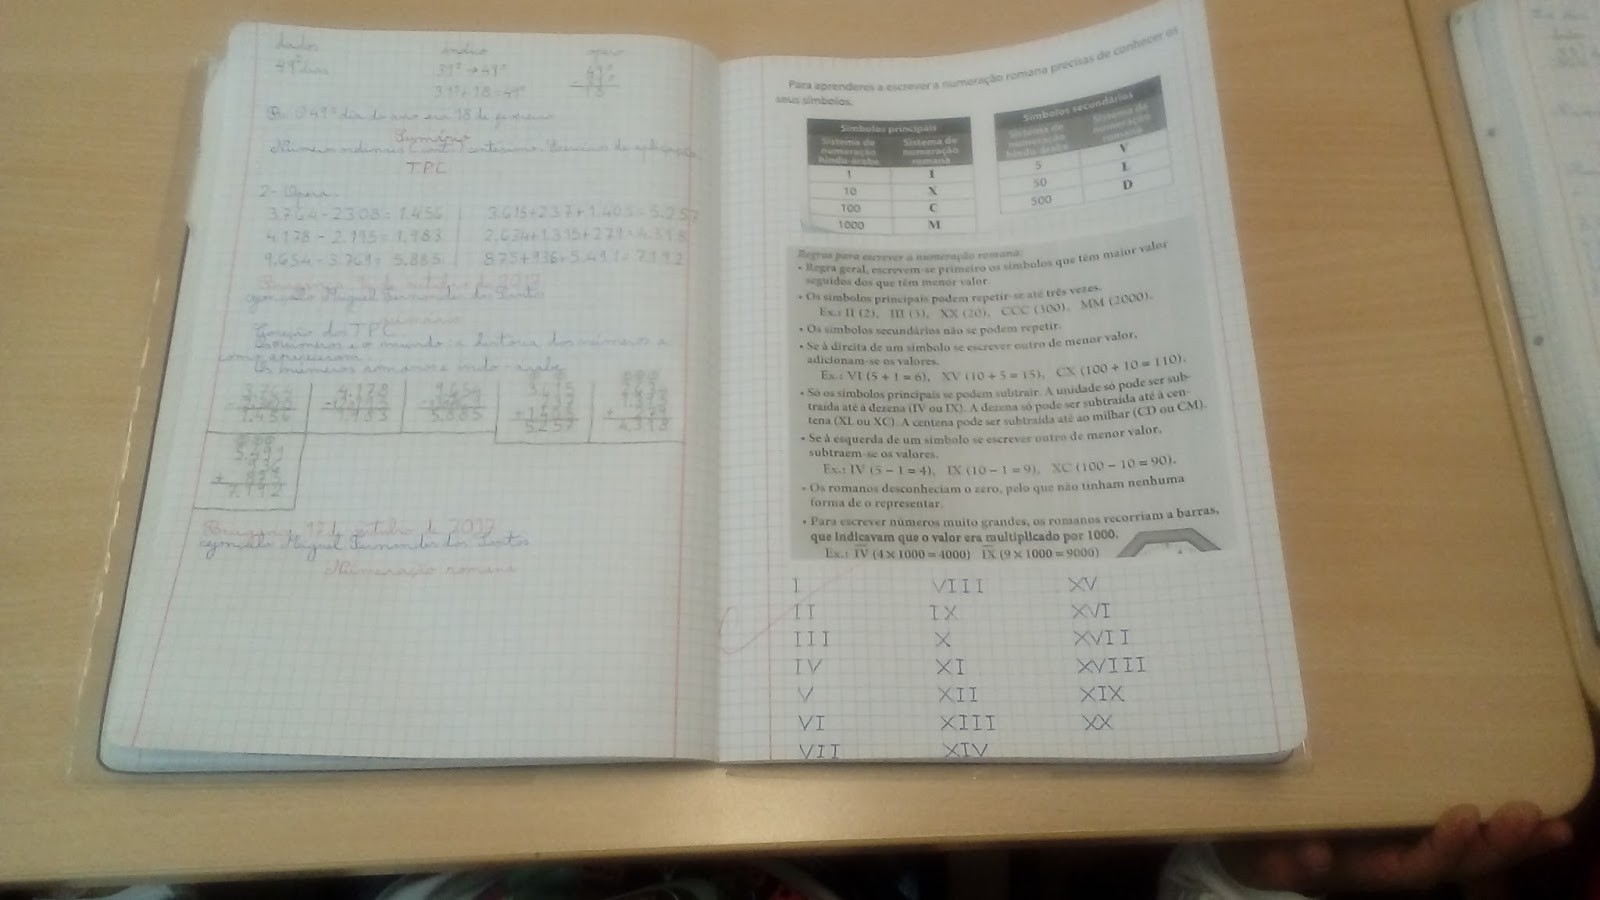 dados
indico
opero
49º dias
31º → 49º
49º
31º + 18 = 49º
- 31º
18
R: O 49º dia do ano era 18 de fevereiro
Sumário
Números ordinais centésimo. Exercícios de aplicação
TPC
2- Opera.
3.764 - 2308 = 1.456
3.615 + 237 + 1.405 = 5.257
4.178 - 2.195 = 1.983
2.634 + 1.315 + 279 = 4.318
9.654 - 3.769 = 5.885
875 + 936 + 5.491 = 7.192
Bragança, de outubro de 2017
Gonçalo Miguel Fernandes dos Santos
Sumário
Correção do TPC
Os números e o mundo: a história dos números e
como apareceram.
Os números romanos e indo-árabe
1.456
1.983
5.885
5.257
4.318
7.192
Bragança, 17 de outubro de 2017
Gonçalo Miguel Fernandes dos Santos
Numeração romana
Para aprenderes a escrever a numeração romana precisas de conhecer os
seus símbolos.
Símbolos principais
Sistema de numeração hindu-árabe
Sistema de numeração romana
1 I
10 X
100 C
1000 M
Símbolos secundários
Sistema de numeração hindu-árabe
Sistema de numeração romana
5 V
50 L
500 D
Regras para escrever a numeração romana:
• Regra geral, escrevem-se primeiro os símbolos que têm maior valor
seguidos dos que têm menor valor.
• Os símbolos principais podem repetir-se até três vezes.
Ex.: II (2), III (3), XX (20), CCC (300), MM (2000).
• Os símbolos secundários não se podem repetir.
• Se à direita de um símbolo se escrever outro de menor valor,
adicionam-se os valores.
Ex.: VI (5 + 1 = 6), XV (10 + 5 = 15), CX (100 + 10 = 110).
• Só os símbolos principais se podem subtrair. A unidade só pode ser sub-
traída até à dezena (IV ou IX). A dezena só pode ser subtraída até à cen-
tena (XL ou XC). A centena pode ser subtraída até ao milhar (CD ou CM).
• Se à esquerda de um símbolo se escrever outro de menor valor,
subtraem-se os valores.
Ex.: IV (5 − 1 = 4), IX (10 − 1 = 9), XC (100 − 10 = 90).
• Os romanos desconheciam o zero, pelo que não tinham nenhuma
forma de o representar.
• Para escrever números muito grandes, os romanos recorriam a barras,
que indicavam que o valor era multiplicado por 1000.
Ex.: I̅V̅ (4 × 1000 = 4000) I̅X̅ (9 × 1000 = 9000)
I VIII XV
II IX XVI
III X XVII
IV XI XVIII
V XII XIX
VI XIII XX
VII XIV